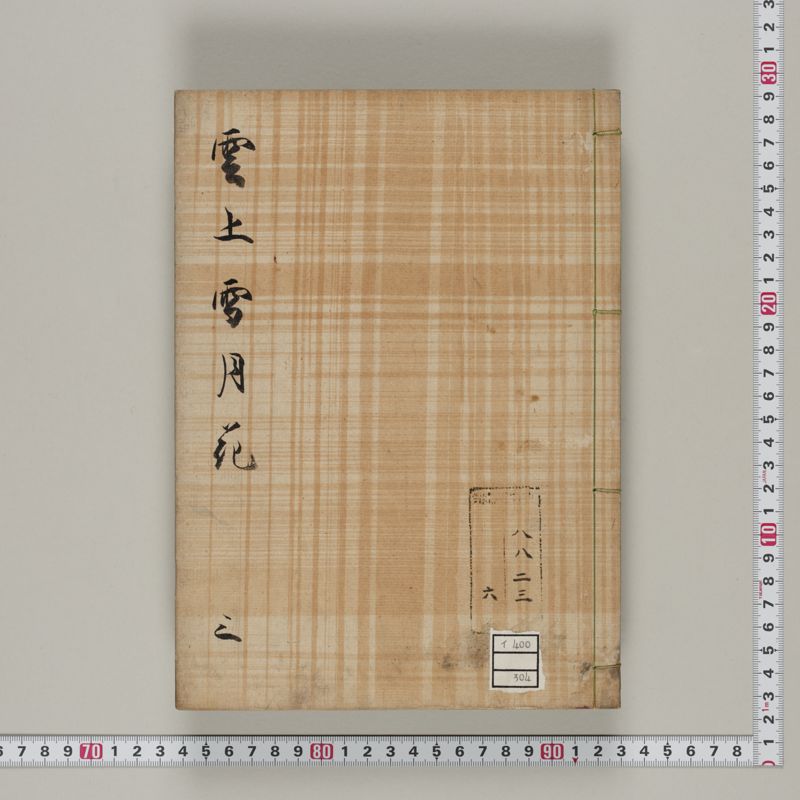 雲上雪月花
三
八八二三
六
イ 400
304
6 7 8 9 70 1 2 3 4 5 6 7 8 9 80 1 2 3 4 5 6 7 8 9 90 1 2 3 4 5 6 7 8
3 2 1 30 9 8 7 6 5 4 3 2 1 20 9 8 7 6 5 4 3 2 1 10 9 8 7 6 5 4 3 2 1
1m